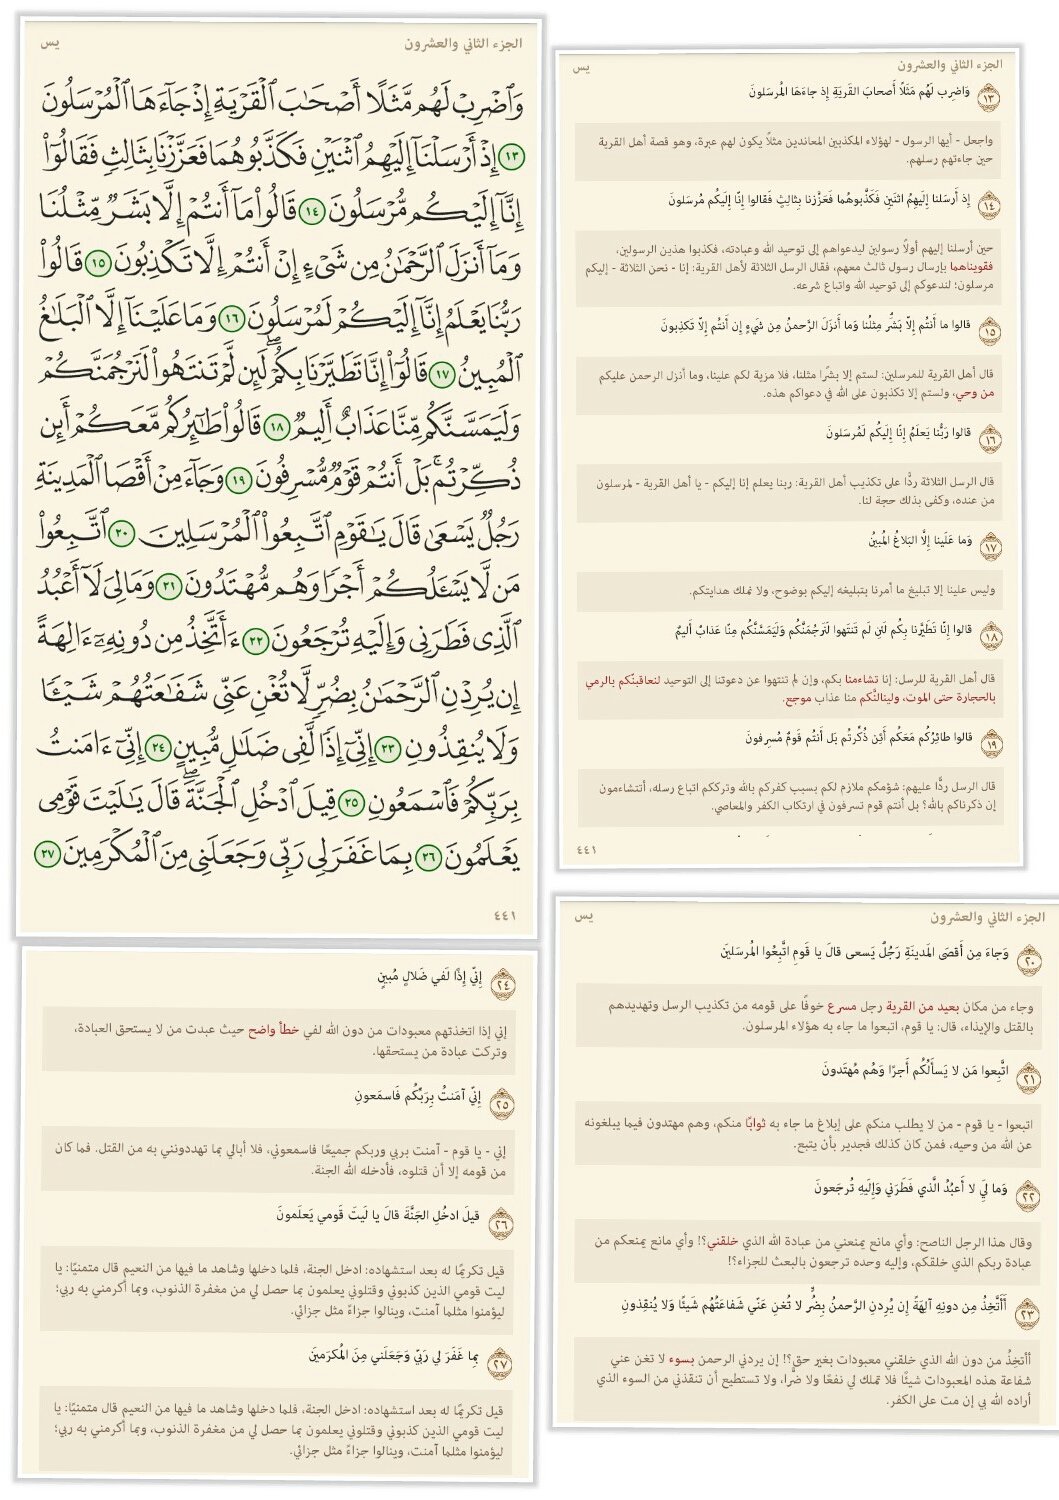 الجزء الثاني والعشرون
يس
وَٱضْرِبْ لَهُم مَّثَلًا أَصْحَٰبَ ٱلْقَرْيَةِ إِذْ جَآءَهَا ٱلْمُرْسَلُونَ
١٣ إِذْ أَرْسَلْنَآ إِلَيْهِمُ ٱثْنَيْنِ فَكَذَّبُوهُمَا فَعَزَّزْنَا بِثَالِثٍ فَقَالُوٓا۟
إِنَّآ إِلَيْكُم مُّرْسَلُونَ ١٤ قَالُوا۟ مَآ أَنتُمْ إِلَّا بَشَرٌ مِّثْلُنَا
وَمَآ أَنزَلَ ٱلرَّحْمَٰنُ مِن شَىْءٍ إِنْ أَنتُمْ إِلَّا تَكْذِبُونَ ١٥ قَالُوا۟
رَبُّنَا يَعْلَمُ إِنَّآ إِلَيْكُمْ لَمُرْسَلُونَ ١٦ وَمَا عَلَيْنَآ إِلَّا ٱلْبَلَٰغُ
ٱلْمُبِينُ ١٧ قَالُوٓا۟ إِنَّا تَطَيَّرْنَا بِكُمْ ۖ لَئِن لَّمْ تَنتَهُوا۟ لَنَرْجُمَنَّكُمْ
وَلَيَمَسَّنَّكُم مِّنَّا عَذَابٌ أَلِيمٌ ١٨ قَالُوا۟ طَٰٓئِرُكُم مَّعَكُمْ ۚ أَئِن
ذُكِّرْتُم ۚ بَلْ أَنتُمْ قَوْمٌ مُّسْرِفُونَ ١٩ وَجَآءَ مِنْ أَقْصَا ٱلْمَدِينَةِ
رَجُلٌ يَسْعَىٰ قَالَ يَٰقَوْمِ ٱتَّبِعُوا۟ ٱلْمُرْسَلِينَ ٢٠ ٱتَّبِعُوا۟
مَن لَّا يَسْـَٔلُكُمْ أَجْرًا وَهُم مُّهْتَدُونَ ٢١ وَمَا لِىَ لَآ أَعْبُدُ
ٱلَّذِى فَطَرَنِى وَإِلَيْهِ تُرْجَعُونَ ٢٢ ءَأَتَّخِذُ مِن دُونِهِۦٓ ءَالِهَةً
إِن يُرِدْنِ ٱلرَّحْمَٰنُ بِضُرٍّ لَّا تُغْنِ عَنِّى شَفَٰعَتُهُمْ شَيْـًٔا
وَلَا يُنقِذُونِ ٢٣ إِنِّىٓ إِذًا لَّفِى ضَلَٰلٍ مُّبِينٍ ٢٤ إِنِّىٓ ءَامَنتُ
بِرَبِّكُمْ فَٱسْمَعُونِ ٢٥ قِيلَ ٱدْخُلِ ٱلْجَنَّةَ ۖ قَالَ يَٰلَيْتَ قَوْمِى
يَعْلَمُونَ ٢٦ بِمَا غَفَرَ لِى رَبِّى وَجَعَلَنِى مِنَ ٱلْمُكْرَمِينَ ٢٧
٤٤١
الجزء الثاني والعشرون
يس
١٣ وَاضرِب لَهُم مَثَلًا أَصحابَ القَريَةِ إِذ جاءَهَا المُرسَلونَ
واجعل - أيها الرسول - لهؤلاء المكذبين المعاندين مثلًا يكون لهم عبرة، وهو قصة أهل القرية
حين جاءتهم رسلهم.
١٤ إِذ أَرسَلنا إِلَيهِمُ اثنَينِ فَكَذَّبوهُما فَعَزَّزنا بِثالِثٍ فَقالوا إِنّا إِلَيكُم مُرسَلونَ
حين أرسلنا إليهم أولًا رسولين ليدعواهم إلى توحيد الله وعبادته، فكذبوا هذين الرسولين،
فقويناهما بإرسال رسول ثالث معهم، فقال الرسل الثلاثة لأهل القرية: إنا - نحن الثلاثة - إليكم
مرسلون؛ لندعوكم إلى توحيد الله واتباع شرعه.
١٥ قالوا ما أَنتُم إِلّا بَشَرٌ مِثلُنا وَما أَنزَلَ الرَّحمنُ مِن شَيءٍ إِن أَنتُم إِلّا تَكذِبونَ
قال أهل القرية للمرسلين: لستم إلا بشرًا مثلنا، فلا مزية لكم علينا، وما أنزل الرحمن عليكم
من وحي، ولستم إلا تكذبون على الله في دعواكم هذه.
١٦ قالوا رَبُّنا يَعلَمُ إِنّا إِلَيكُم لَمُرسَلونَ
قال الرسل الثلاثة ردًّا على تكذيب أهل القرية: ربنا يعلم إنا إليكم - يا أهل القرية - لمرسلون
من عنده، وكفى بذلك حجة لنا.
١٧ وَما عَلَينا إِلَّا البَلاغُ المُبينُ
وليس علينا إلا تبليغ ما أمرنا بتبليغه إليكم بوضوح، ولا نملك هدايتكم.
١٨ قالوا إِنّا تَطَيَّرنا بِكُم لَئِن لَم تَنتَهوا لَنَرجُمَنَّكُم وَلَيَمَسَّنَّكُم مِنّا عَذابٌ أَليمٌ
قال أهل القرية للرسل: إنا تشاءمنا بكم، وإن لم تنتهوا عن دعوتنا إلى التوحيد لنعاقبنّكم بالرمي
بالحجارة حتى الموت، ولينالنَّكم منا عذاب موجع.
١٩ قالوا طائِرُكُم مَعَكُم أَئِن ذُكِّرتُم بَل أَنتُم قَومٌ مُسرِفونَ
قال الرسل ردًّا عليهم: شؤمكم ملازم لكم بسبب كفركم بالله وترككم اتباع رسله، أتتشاءمون
إن ذكرناكم بالله؟ بل أنتم قوم تسرفون في ارتكاب الكفر والمعاصي.
٤٤١
الجزء الثاني والعشرون
يس
٢٠ وَجاءَ مِن أَقصَى المَدينَةِ رَجُلٌ يَسعى قالَ يا قَومِ اتَّبِعُوا المُرسَلينَ
وجاء من مكان بعيد من القرية رجل مسرع خوفًا على قومه من تكذيب الرسل وتهديدهم
بالقتل والإيذاء، قال: يا قوم، اتبعوا ما جاء به هؤلاء المرسلون.
٢١ اتَّبِعوا مَن لا يَسأَلُكُم أَجرًا وَهُم مُهتَدونَ
اتبعوا - يا قوم - من لا يطلب منكم على إبلاغ ما جاء به ثوابًا منكم، وهم مهتدون فيما يبلغونه
عن الله من وحيه، فمن كان كذلك فجدير بأن يتبع.
٢٢ وَما لِيَ لا أَعبُدُ الَّذي فَطَرَني وَإِلَيهِ تُرجَعونَ
وقال هذا الرجل الناصح: وأي مانع يمنعني من عبادة الله الذي خلقني؟! وأي مانع يمنعكم من
عبادة ربكم الذي خلقكم، وإليه وحده ترجعون بالبعث للجزاء؟!
٢٣ أَأَتَّخِذُ مِن دونِهِ آلِهَةً إِن يُرِدنِ الرَّحمنُ بِضُرٍّ لا تُغنِ عَنّي شَفاعَتُهُم شَيئًا وَلا يُنقِذونِ
أأتخِذُ من دون الله الذي خلقني معبودات بغير حق؟! إن يردني الرحمن بسوء لا تغن عني
شفاعة هذه المعبودات شيئًا فلا تملك لي نفعًا ولا ضرًا، ولا تستطيع أن تنقذني من السوء الذي
أراده الله بي إن مت على الكفر.
٢٤ إِنّي إِذًا لَفي ضَلالٍ مُبينٍ
إني إذا اتخذتهم معبودات من دون الله لفي خطأ واضح حيث عبدت من لا يستحق العبادة،
وتركت عبادة من يستحقها.
٢٥ إِنّي آمَنتُ بِرَبِّكُم فَاسمَعونِ
إني - يا قوم - آمنت بربي وربكم جميعًا فاسمعوني، فلا أبالي بما تهددونني به من القتل. فما كان
من قومه إلا أن قتلوه، فأدخله الله الجنة.
٢٦ قيلَ ادخُلِ الجَنَّةَ قالَ يا لَيتَ قَومي يَعلَمونَ
قيل تكريمًا له بعد استشهاده: ادخل الجنة، فلما دخلها وشاهد ما فيها من النعيم قال متمنيًا: يا
ليت قومي الذين كذبوني وقتلوني يعلمون بما حصل لي من مغفرة الذنوب، وبما أكرمني به ربي؛
ليؤمنوا مثلما آمنت، وينالوا جزاءً مثل جزائي.
٢٧ بِما غَفَرَ لي رَبّي وَجَعَلَني مِنَ المُكرَمينَ
قيل تكريمًا له بعد استشهاده: ادخل الجنة، فلما دخلها وشاهد ما فيها من النعيم قال متمنيًا: يا
ليت قومي الذين كذبوني وقتلوني يعلمون بما حصل لي من مغفرة الذنوب، وبما أكرمني به ربي؛
ليؤمنوا مثلما آمنت، وينالوا جزاءً مثل جزائي.